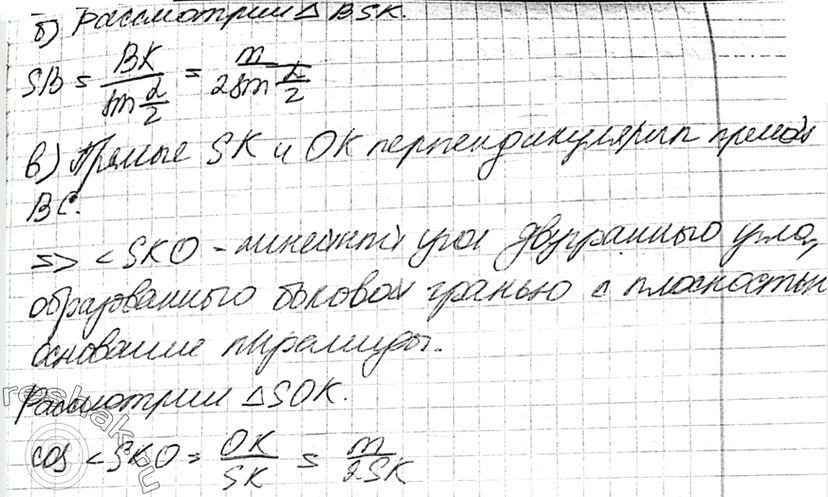 б) Рассмотрим △BSK.
SB = BK / sin α/2 = m / 2sin α/2
в) Прямые SK и OK перпендикулярны прямой
BC.
=> <SKO - линейный угол двугранного угла,
образованного боковой гранью с плоскостью
основание пирамиды.
Рассмотрим △SOK.
cos <SKO = OK / SK = m / 2SK
reshak.ru